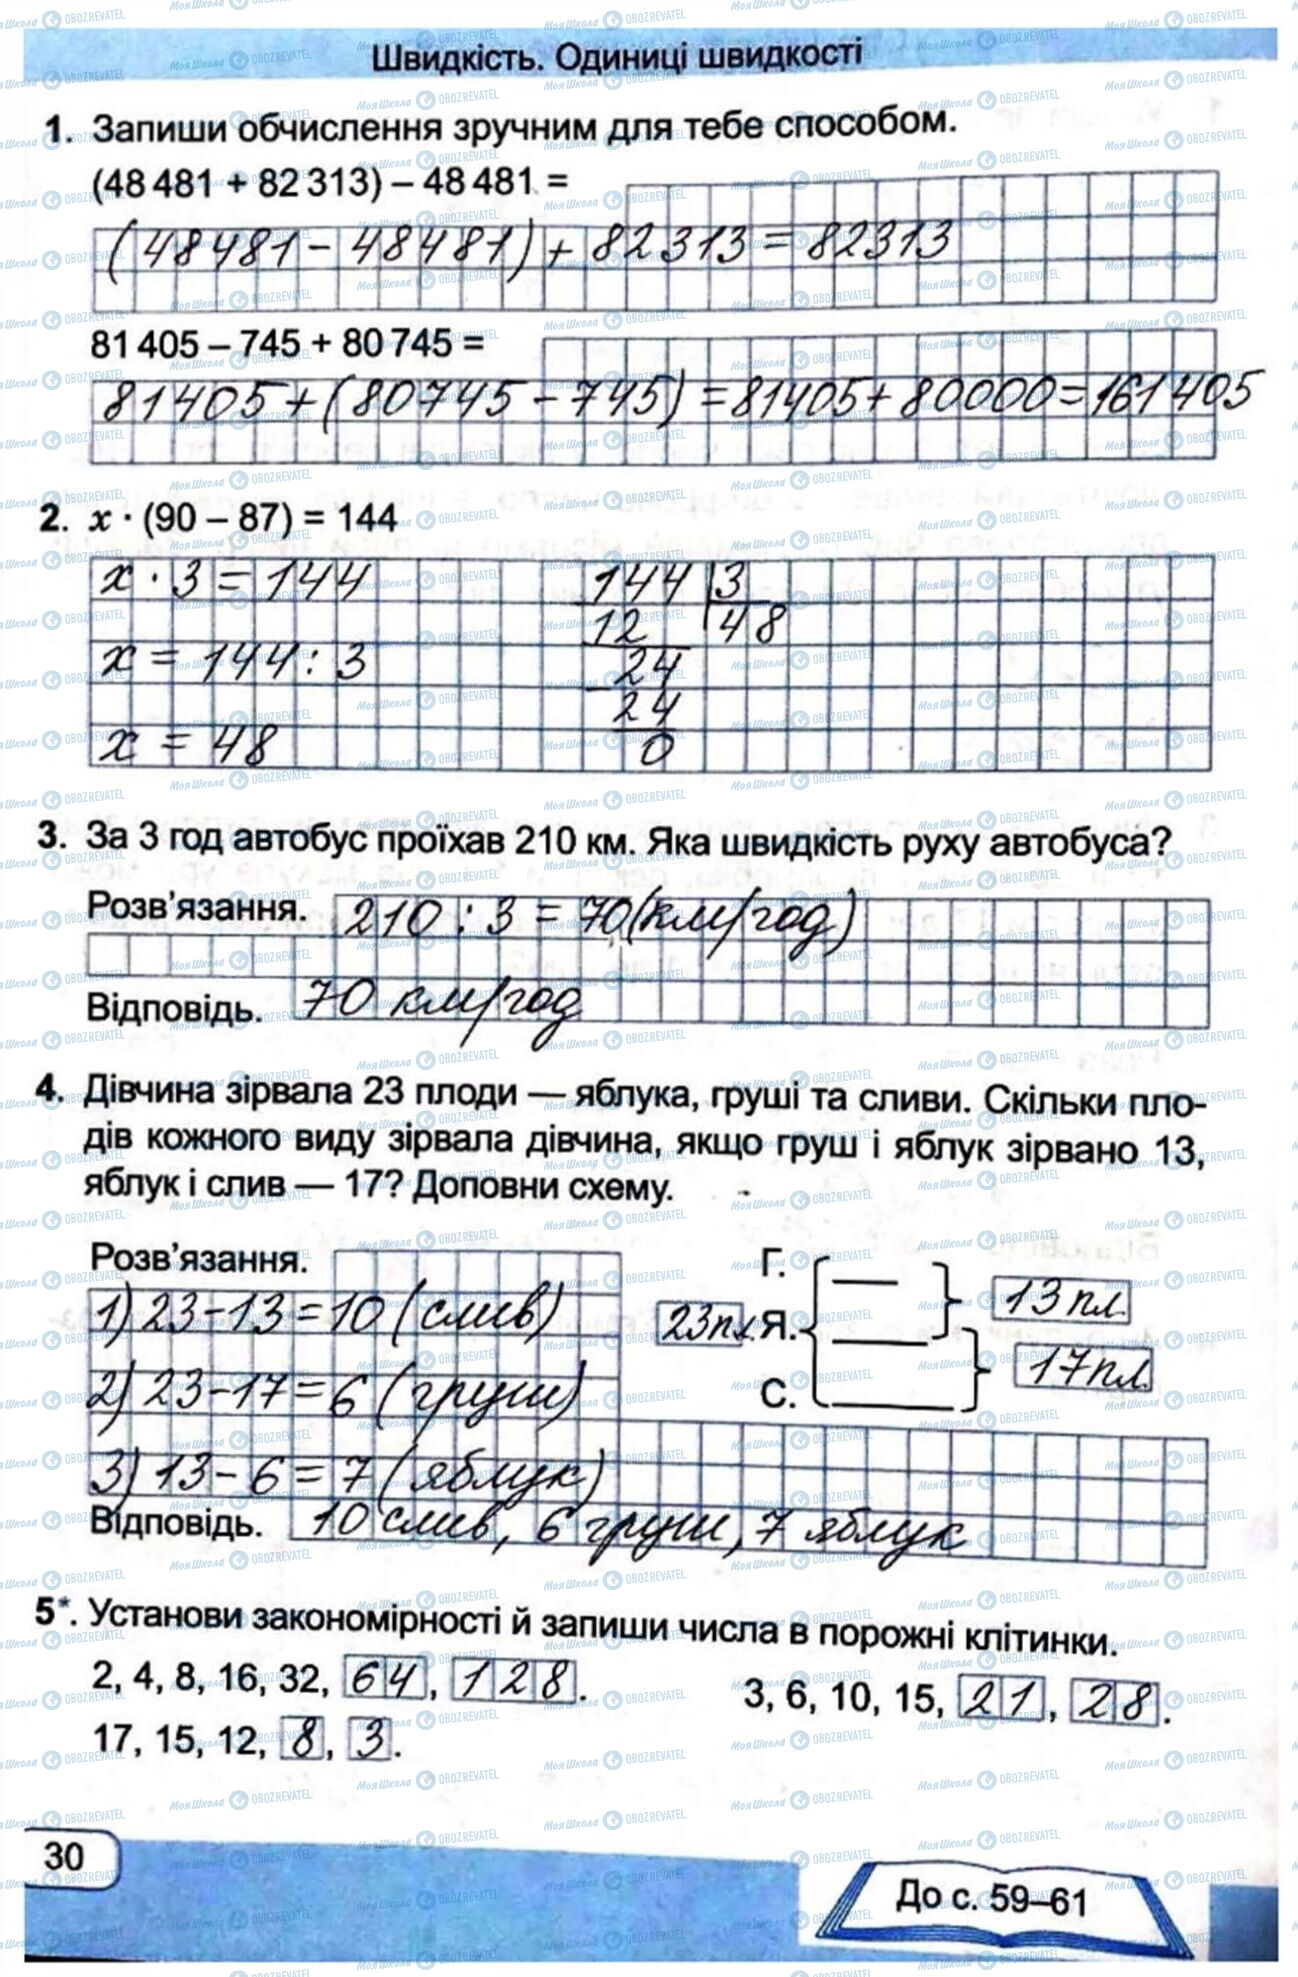 Швидкість. Одиниці швидкості
1. Запиши обчислення зручним для тебе способом.
(48 481 + 82 313) – 48 481 =
(48481 - 48481) + 82313 = 82313
81 405 – 745 + 80 745 =
81405 + (80745 - 745) = 81405 + 80000 = 161405
2. x · (90 – 87) = 144
x · 3 = 144 144 3
12 48
x = 144 : 3 24
24
x = 48 0
3. За 3 год автобус проїхав 210 км. Яка швидкість руху автобуса?
Розв'язання. 210 : 3 = 70 (км/год)
Відповідь. 70 км/год
4. Дівчина зірвала 23 плоди — яблука, груші та сливи. Скільки пло-
дів кожного виду зірвала дівчина, якщо груш і яблук зірвано 13,
яблук і слив — 17? Доповни схему.
Розв'язання. Г.
1) 23 - 13 = 10 (слив) 23пл. Я. 13 пл.
2) 23 - 17 = 6 (груш) С. 17 пл.
3) 13 - 6 = 7 (яблук)
Відповідь. 10 слив, 6 груш, 7 яблук
5*. Установи закономірності й запиши числа в порожні клітинки.
2, 4, 8, 16, 32, 64, 128. 3, 6, 10, 15, 21, 28.
17, 15, 12, 8, 3.
30
До с. 59–61
МояШкола OBOZREVATEL